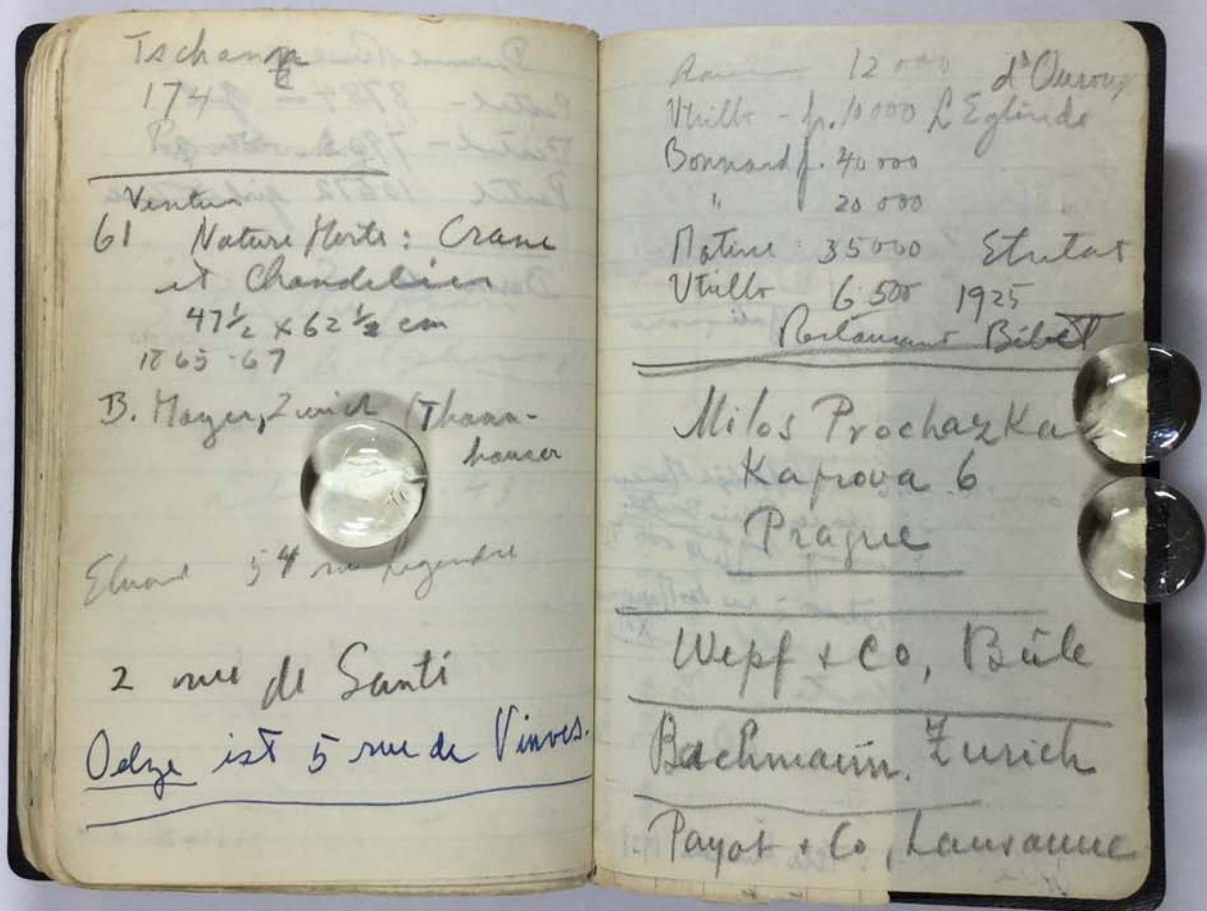 174
Venturi
61 Nature Morte: Crane
et Chandelier
47½ x 62½ cm
1865-67
B. Mayer, Zurich (Thann-
hauser
54 rue Legendre
2 rue de
Oelze ist 5 rue de Vinves.
12 000
Utrillo - fr. 10 000 L'Eglise de
Bonnard fr. 40 000
" 20 000
Matisse 35000 Etretat
Utrillo 6.500 1925
Restaurant
Milos Prochazka
Kaprova 6
Prague
Wepf + Co, Bâle
Bachmann, Zurich
Payot + Co, Lausanne